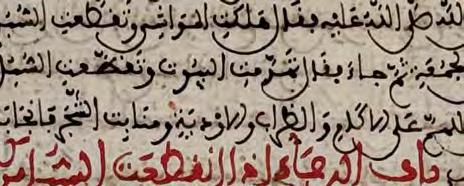 الله صلى الله عليه فقال هلكت المواشي وتقطعت السبل
لجمعة ثم جاء فقال تهدمت البيوت وتقطعت السبل
اللهم على الاكام والظراب والاودية ومنابت الشجر فانجابت
باب الدعاء اذا انقطعت السبل من